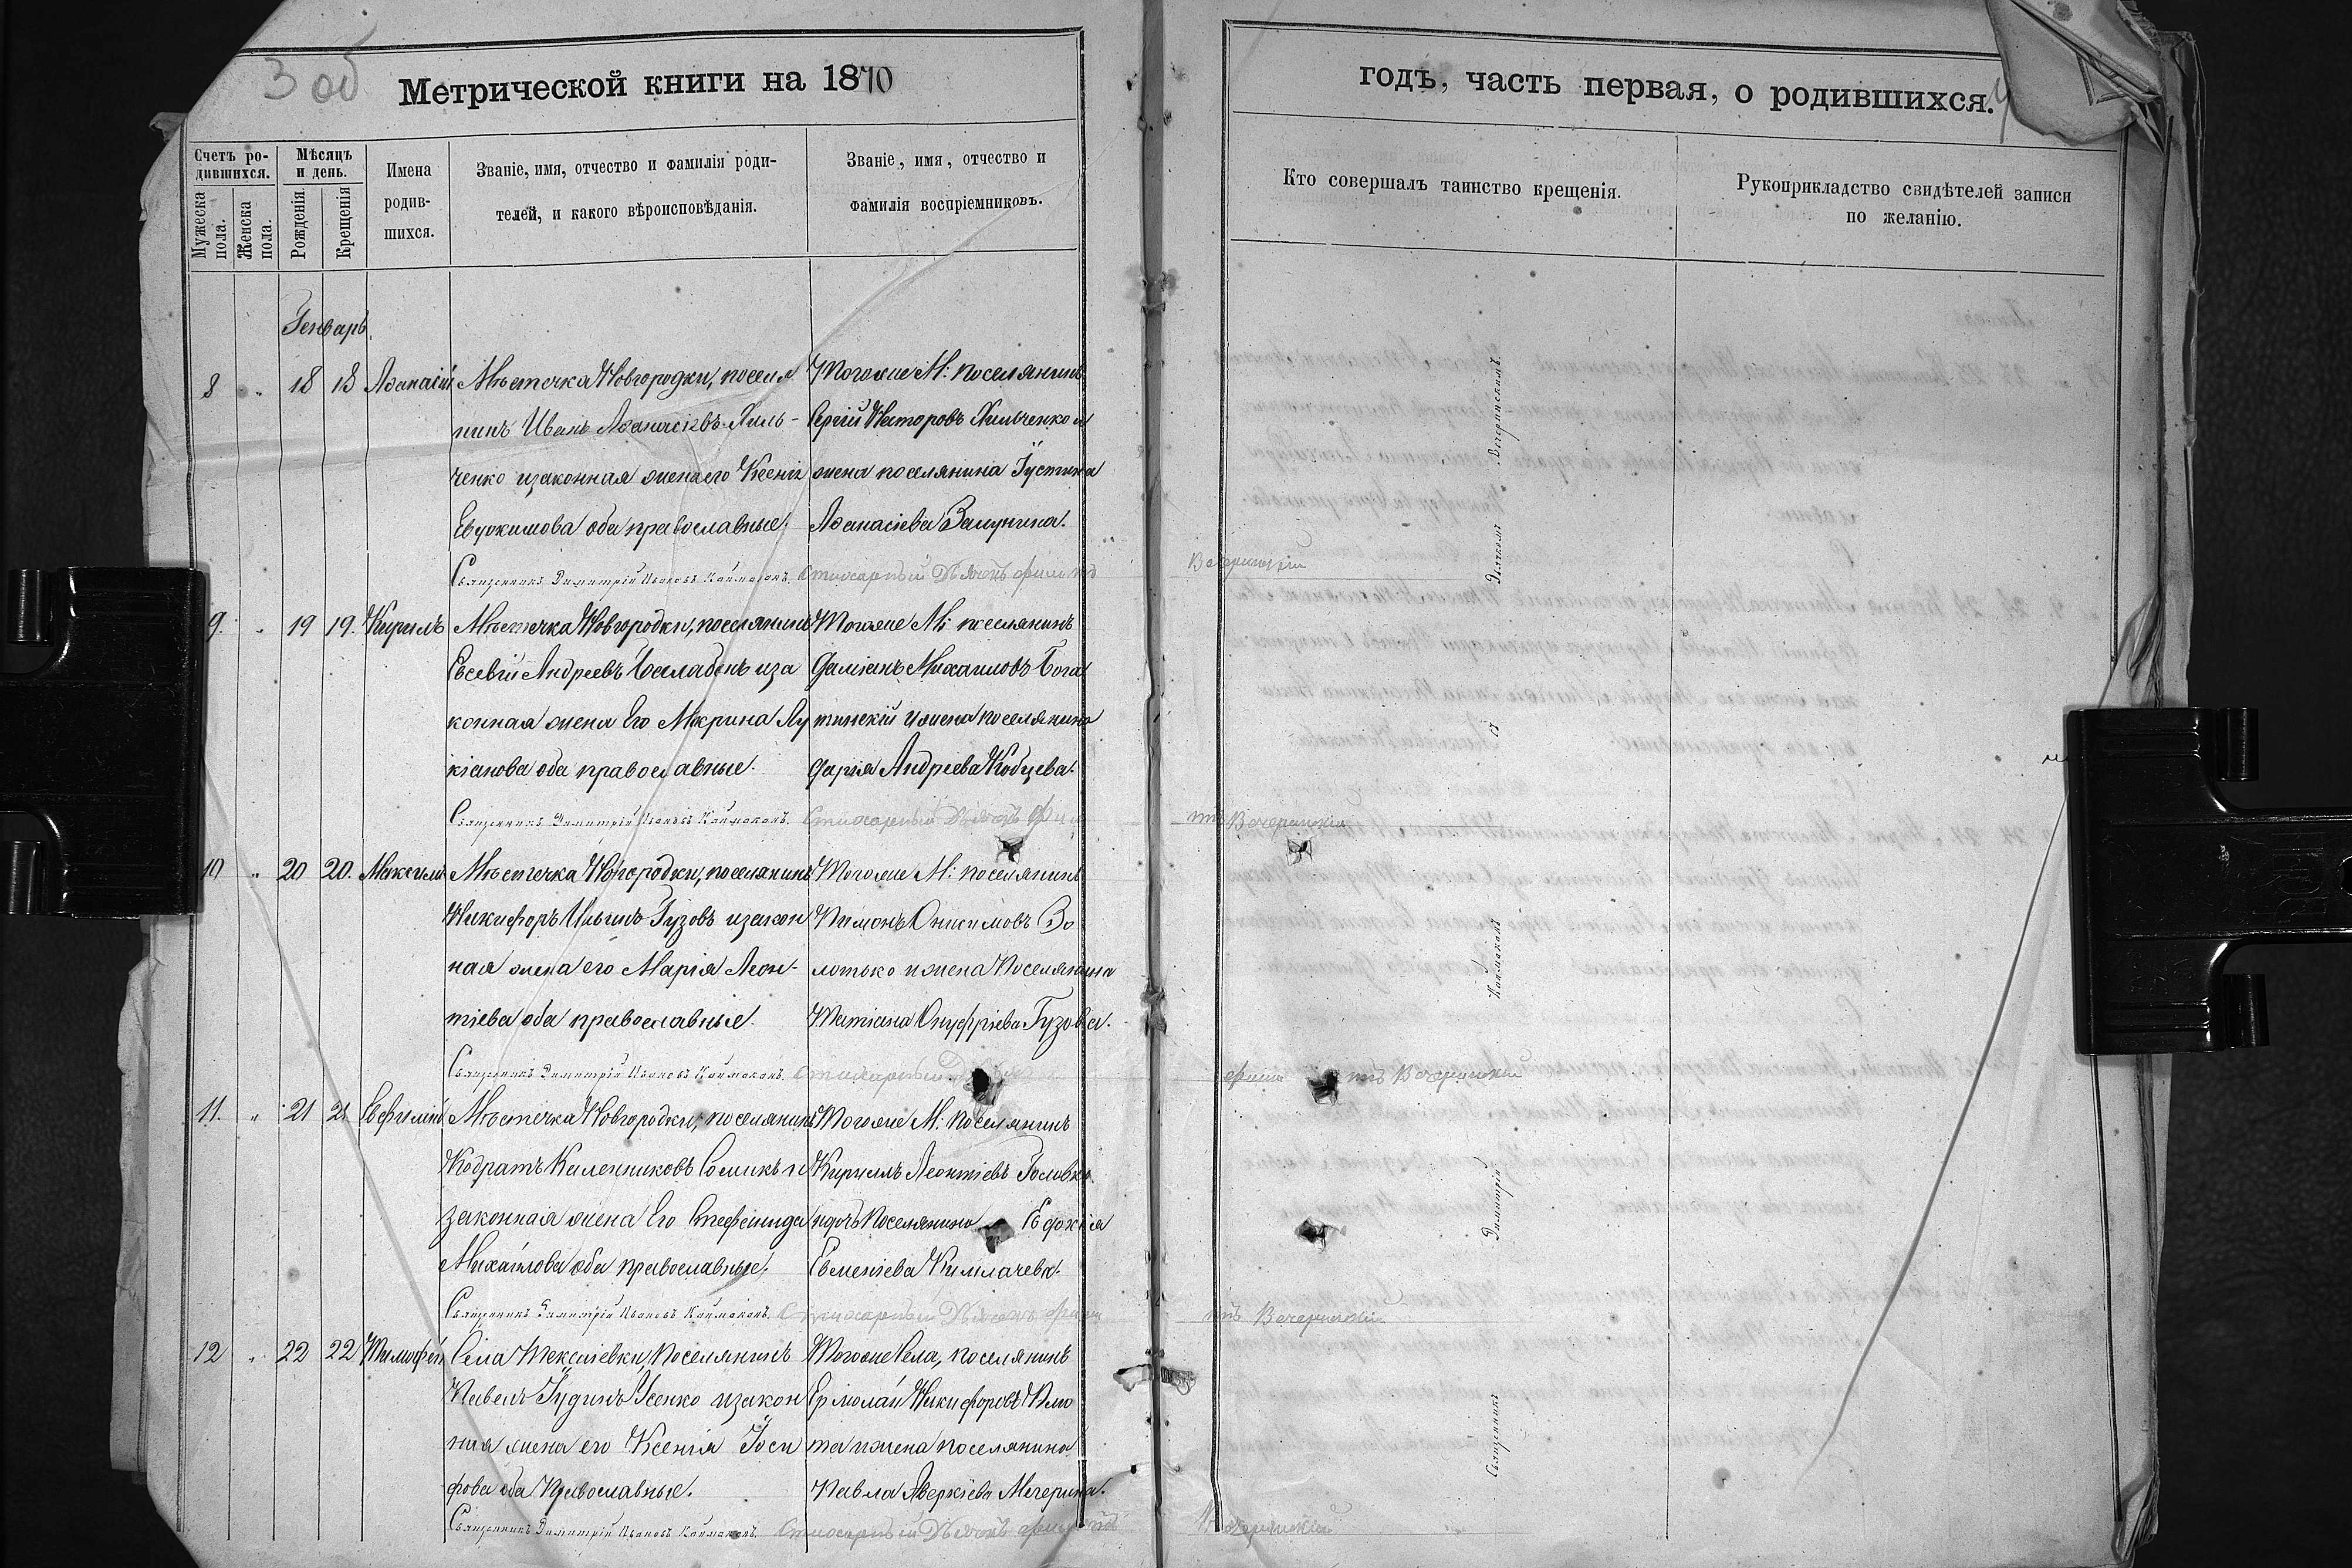 3 об
Метрической книги на 1870
годъ, часть первая, о родившихся.
Счетъ родившихся.
Мужеска пола.
Женска пола.
Мѣсяцъ и день.
Рожденія.
Крещенія
Имена родившихся.
Званіе, имя, отчество и фамилія родителей, и какого вѣроисповѣданія.
Званіе, имя, отчество и фамилія воспріемниковъ.
Кто совершалъ таинство крещенія.
Рукоприкладство свидѣтелей записи по желанію.
Генварь
8 " 18 18 Аѳанасій
Мѣстечка Новгородки, поселя
нинъ Иванъ Аѳанасіевъ Хиль-
ченко изаконная жена его Ксенія
Евдокимова оба православные.
Тогоже М: поселянинъ
Сергій Несторовъ Хильченко и
жена поселянина Іустина
Аѳанасіева
Священникъ Димитрій Ивановъ Каймаканъ. Стихарный Дьячокъ Филиппъ Вечеринскій
9. " 19 19. Кирилъ
Мѣстечка Новгородки, поселянинъ
Евсевій Андреевъ иза
конная жена Его Макрина Лу
кіанова оба православные.
Тогоже М: поселянинъ
Даміанъ Михаиловъ Бога
тинскій и жена поселянина
Дарія Андреева Кобцева.
Священникъ Димитрій Ивановъ Каймаканъ. Стихарный Дьячокъ Филиппъ Вечеринскій
10 " 20 20. Максимъ
Мѣстечка Новгородки, поселянинъ
Никифоръ Ильинъ Гузовъ изакон
ная жена его Марія Леон-
тіева оба православные.
Тогоже М: поселянинъ
Пимонъ Онисимовъ Зо
лотько и жена Поселянина
Татіана Онуфріева Гузова.
Священникъ Димитрій Ивановъ Каймаканъ. Стихарный Вечеринскій
11. " 21 21. Евфимій
Мѣстечка Новгородки, поселянинъ
Кодратъ Каленниковъ Сомикъ и
законная жена Его Стефанида
Михайлова оба православные.
Тогоже М: Поселянинъ
Кирилъ Леонтіевъ Головко
идочь Поселянина Е докія
Евменіева
Священникъ Димитрій Ивановъ Каймаканъ. Стихарный Дьячокъ Филиппъ Вечеринскій
12 " 22 22 Тимофей
Села Поселянинъ
Павелъ Іудинъ Усенко изакон
ная жена его Ксенія Іоси
фова оба Православные.
Тогоже Села, поселянинъ
Ермолай Никифоровъ Пло
та и жена поселянина
Павла Аверкіева Мачерина.
Священникъ Димитрій Ивановъ Каймаканъ. Стихарный Дьячокъ Филиппъ Вечеринскій
Священникъ Димитрій Каймаканъ и Дьячокъ Вечеринскій